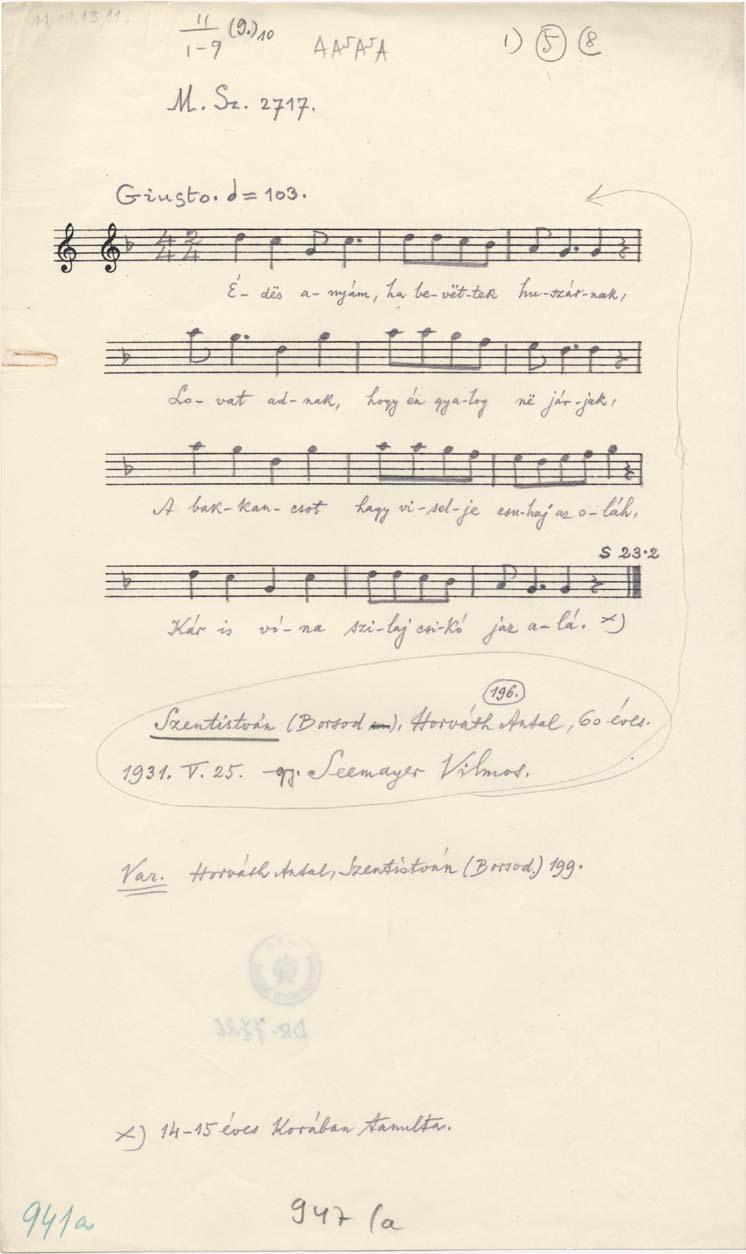 11, 11, 13, 11.
11/1-9 (9.) 10
A A⁵ A⁵ A
1) 5 8
M. Sz. 2717.
Giusto. = 103.
4/4 2/4
É- dës a- nyám, ha be-vët-tek hu-szár-nak,
Lo- vat ad- nak, hogy én gya-log në jár-jak,
A bak-kan- csot hagy vi-sel-je csu-haj az o-láh,
S 23.2
Kár is vó-na szi-laj csi-kó jaz a-lá. x)
196.
Szentistván (Borsod ), Horváth Antal, 60 éves.
1931. V. 25. gy. Seemayer Vilmos.
Var. Horváth Antal, Szentistván (Borsod.) 199.
DR-7726
x) 14-15 éves korában tanulta.
941a 947/a